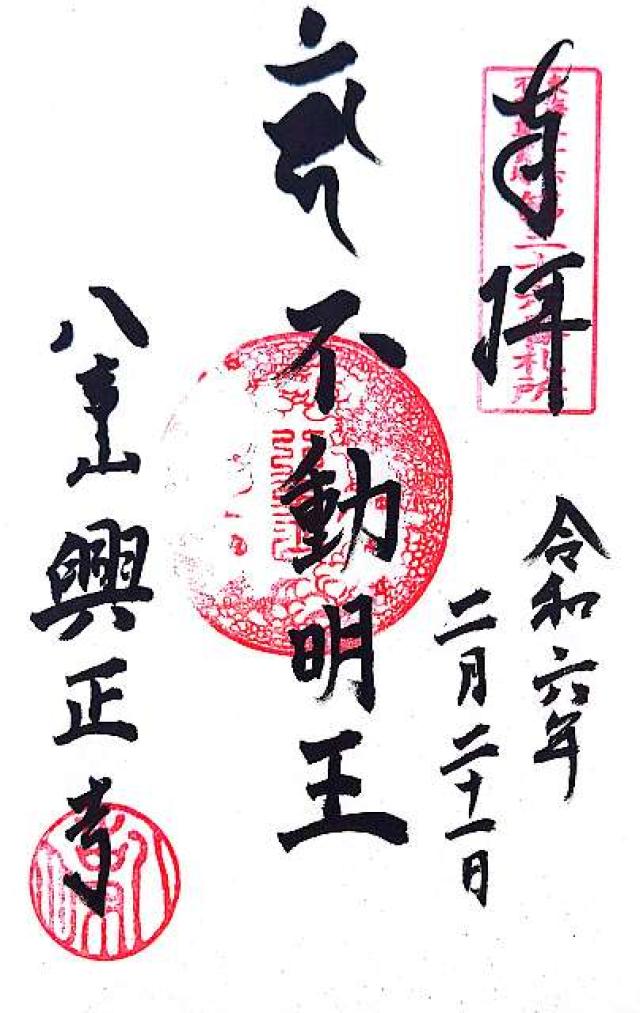 奉拝
令和六年
二月二十一日
不動明王
八事山
興正寺